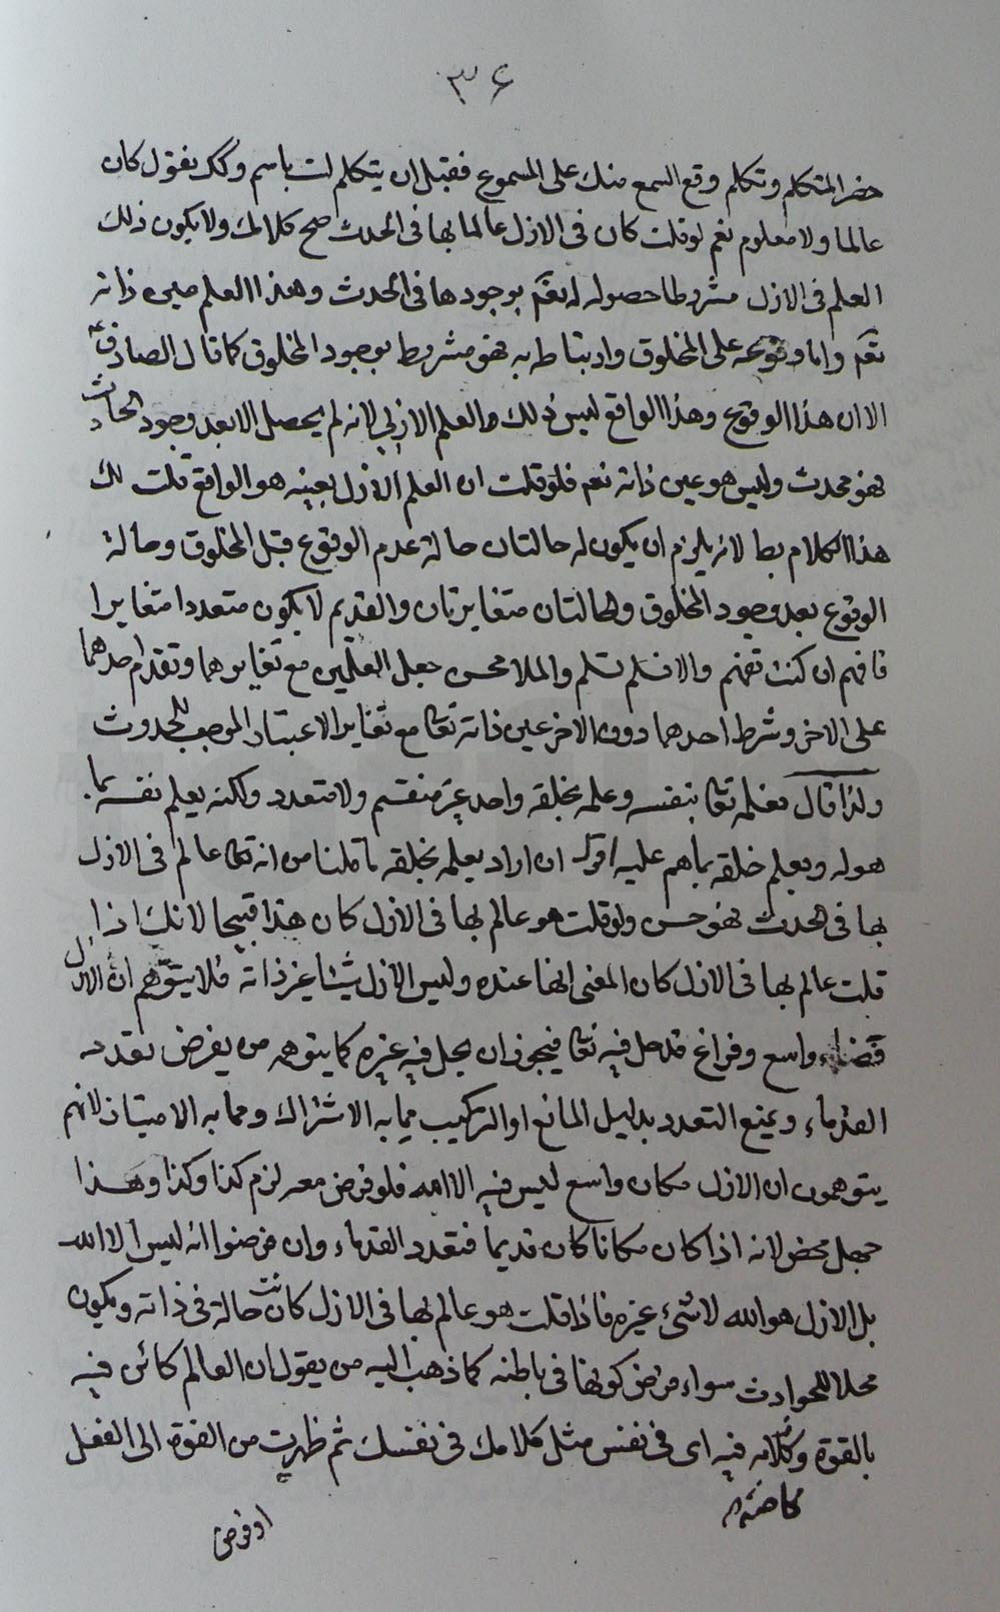 ٣۶
حضر المتكلم وتكلم وقع السمع منك على المسموع فقبل ان يتكلم لست باصم وكك نقول كان
عالما ولا معلوم نعم لو قلت كان فى الازل عالما بها فى الحدث صح كلامك ولا يكون ذلك
العلم فى الازل مشروطا حصوله له تع‍ بوجودها فى الحدث وهذا العلم عين ذاته
تع‍ واما وقوعه على المخلوق وارتباطه به فهو مشروط بوجود المخلوق كما قال الصادق ع
الا ان هذا الوقوع وهذا الواقع ليس ذلك العلم الازلى لانه لم يحصل الا بعد وجود الحادث
فهو محدث وليس هو عين ذاته نعم فلو قلت ان العلم الازل بعينه هو الواقع قلت لك
هذا الكلام بط لانه يلزم ان يكون له حالتان حالة عدم الوقوع قبل المخلوق وحالة
الوقوع بعد وجود المخلوق والحالتان متغايرتان والقديم لا يكون متعددا متغايرا
فافهم ان كنت تفهم والا فسلم تسلم والملا محسن جعل العلمين مع تغايرهما وتقدم احدهما
على الاخر وشرط احدهما دون الاخر عين ذاته تعا مع تغاير الاعتبار الموجب للحدوث
ولذا قال فعلمه تعا بنفسه وعلمه بخلقه واحد غير منقسم ولا متعدد ولكنه يعلم نفسه بما
هو له ويعلم خلقه بما هم عليه اقول ان اراد بعلمه بخلقه ما قلنا من انه تعا عالم فى الازل
بها فى الحدث فهو حسن ولو قلت هو عالم بها فى الازل كان هذا قبيحا لانك اذا
قلت عالم بها فى الازل كان المعنى انها عنده وليس الازل شيئا غير ذاته فلا يتوهم ان الازل
فضاء واسع وفراغ قد حل فيه تعا فيجوز ان يحل فيه غيره كما يتوهمه من يفرض تعدد
القدماء ويمنع التعدد بدليل المانع او التركيب مما به الاشتراك ومما به الامتياز لانهم
يتوهمون ان الازل مكان واسع ليس فيه الا الله فلو فرض معه لزم كذا وكذا وهذا
جهل محض لانه اذا كان مكانا كان قديما فتعدد القدماء وان فرضوا انه ليس الا الله
بل الازل هو الله لا شىء غيره فاذا قلت هو عالم بها فى الازل كانت حالة فى ذاته ويكون
محلا للحوادث سواء فرض كونها فى باطنه كما ذهب اليه من يقول ان العالم كائن فيه
بالقوة وكلامه فيه اى فى نفس مثل كلامك فى نفسك ثم ظهرت من القوة الى الفعل
او فرض